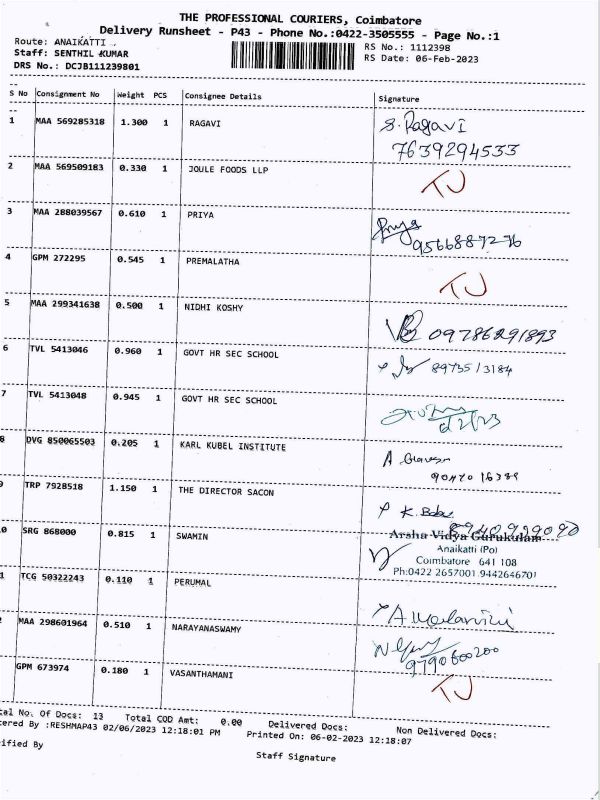 THE PROFESSIONAL COURIERS, Coimbatore
Delivery Runsheet - P43 - Phone No.:0422-3505555 - Page No.:1
Route: ANAIKATTI
Staff: SENTHIL KUMAR
DRS No.: DCJB111239801
RS No.: 1112398
RS Date: 06-Feb-2023
S No Consignment No Weight PCS Consignee Details Signature
1 MAA 569285318 1.300 1 RAGAVI S. Ragavi
7639294533
2 MAA 569509183 0.330 1 JOULE FOODS LLP TJ
3 MAA 288039567 0.610 1 PRIYA Priya
9566887276
4 GPM 272295 0.545 1 PREMALATHA TJ
5 MAA 299341638 0.500 1 NIDHI KOSHY 09786291893
6 TVL 5413046 0.960 1 GOVT HR SEC SCHOOL 89735/3184
7 TVL 5413048 0.945 1 GOVT HR SEC SCHOOL
8 DVG 850065503 0.205 1 KARL KUBEL INSTITUTE A
9 TRP 7928518 1.150 1 THE DIRECTOR SACON K.
0 SRG 868000 0.815 1 SWAMIN Arsha Vidya Gurukulam
Anaikatti (Po)
Coimbatore 641 108
Ph:0422 2657001 9442646701
1 TCG 50322243 0.110 1 PERUMAL
2 MAA 298601964 0.510 1 NARAYANASWAMY
9790600200
GPM 673974 0.180 1 VASANTHAMANI TJ
tal No. Of Docs: 13 Total COD Amt: 0.00 Delivered Docs: Non Delivered Docs:
tered By :RESHMAP43 02/06/2023 12:18:01 PM Printed On: 06-02-2023 12:18:07
ified By
Staff Signature